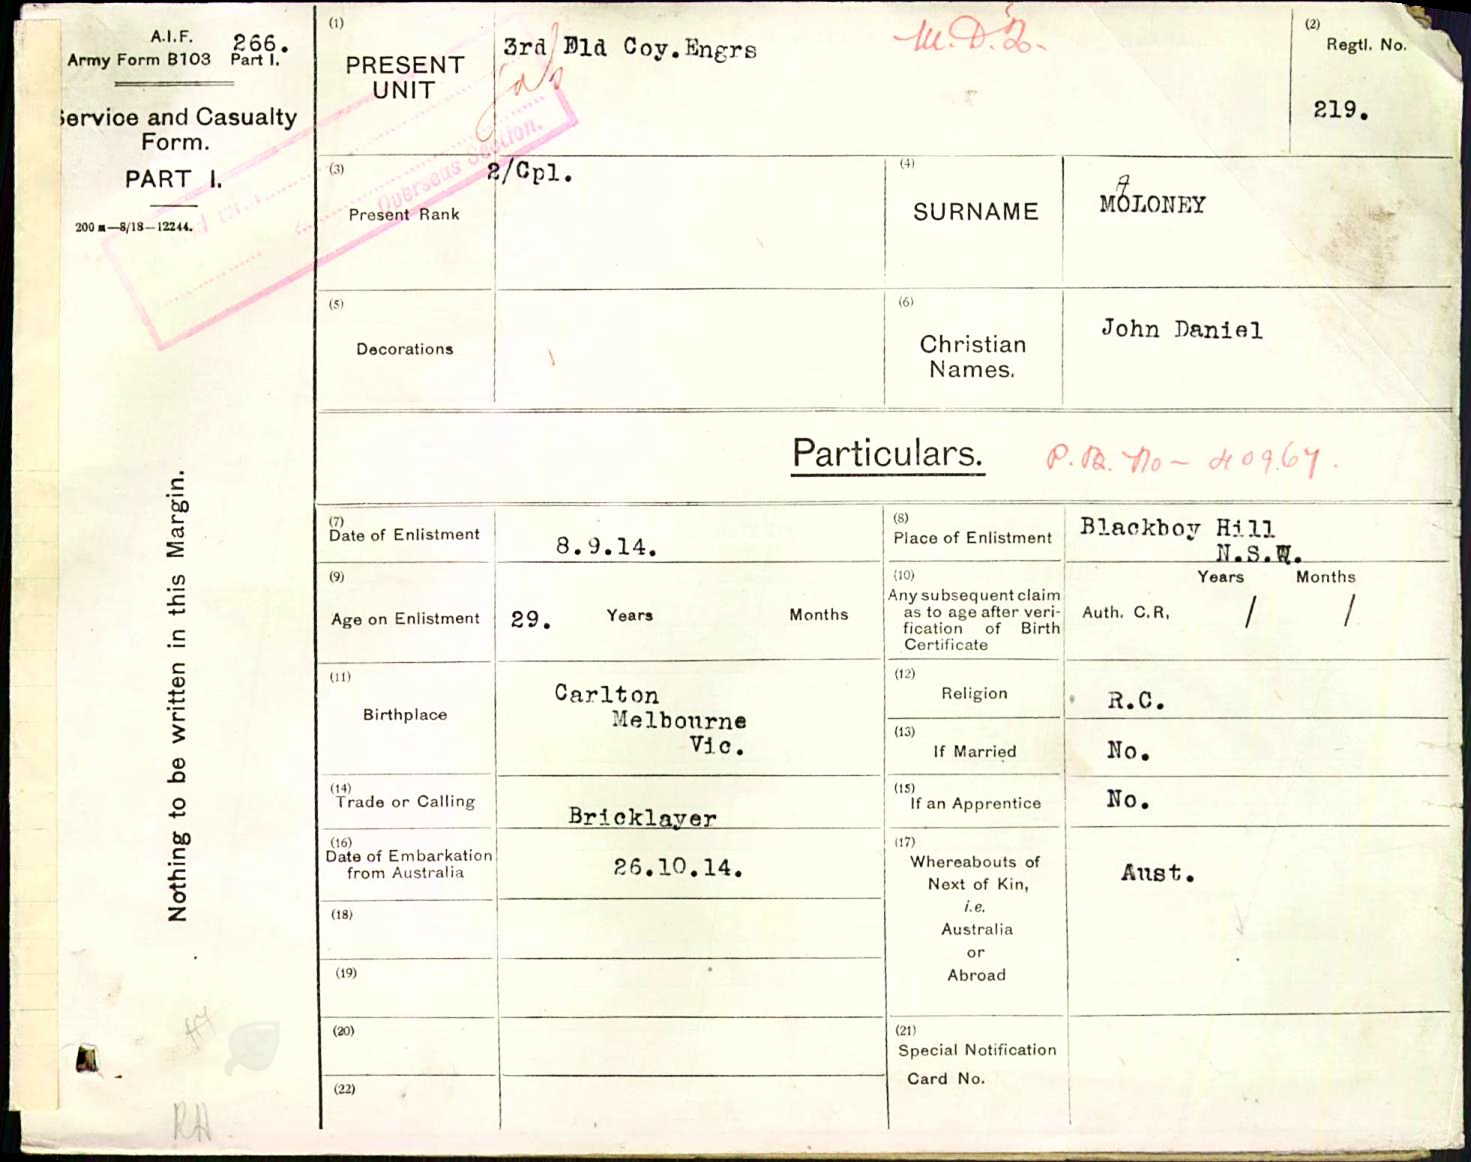 A.I.F. 266.
Army Form B103 Part I.
Service and Casualty
Form.
PART I.
200 m—8/18—12244.
Nothing to be written in this Margin.
Overseas Section.
(1)
PRESENT
UNIT
3rd Fld Coy.Engrs
M.D.2.
(2)
Regtl. No.
219.
(3)
Present Rank
2/Cpl.
(4)
SURNAME
a
MOLONEY
(5)
Decorations
(6)
Christian
Names.
John Daniel
Particulars. P.B. No— 40967.
(7)
Date of Enlistment
8.9.14.
(8)
Place of Enlistment
Blackboy Hill
N.S.W.
(9)
Age on Enlistment
29. Years Months
(10)
Any subsequent claim
as to age after veri-
fication of Birth
Certificate
Years Months
Auth. C.R, / /
(11)
Birthplace
Carlton
Melbourne
Vic.
(12)
Religion
R.C.
(13)
If Married
No.
(14)
Trade or Calling
Bricklayer
(15)
If an Apprentice
No.
(16)
Date of Embarkation
from Australia
26.10.14.
(17)
Whereabouts of
Next of Kin,
i.e.
Australia
or
Abroad
Aust.
(18)
(19)
(20)
(21)
Special Notification
Card No.
(22)
RH